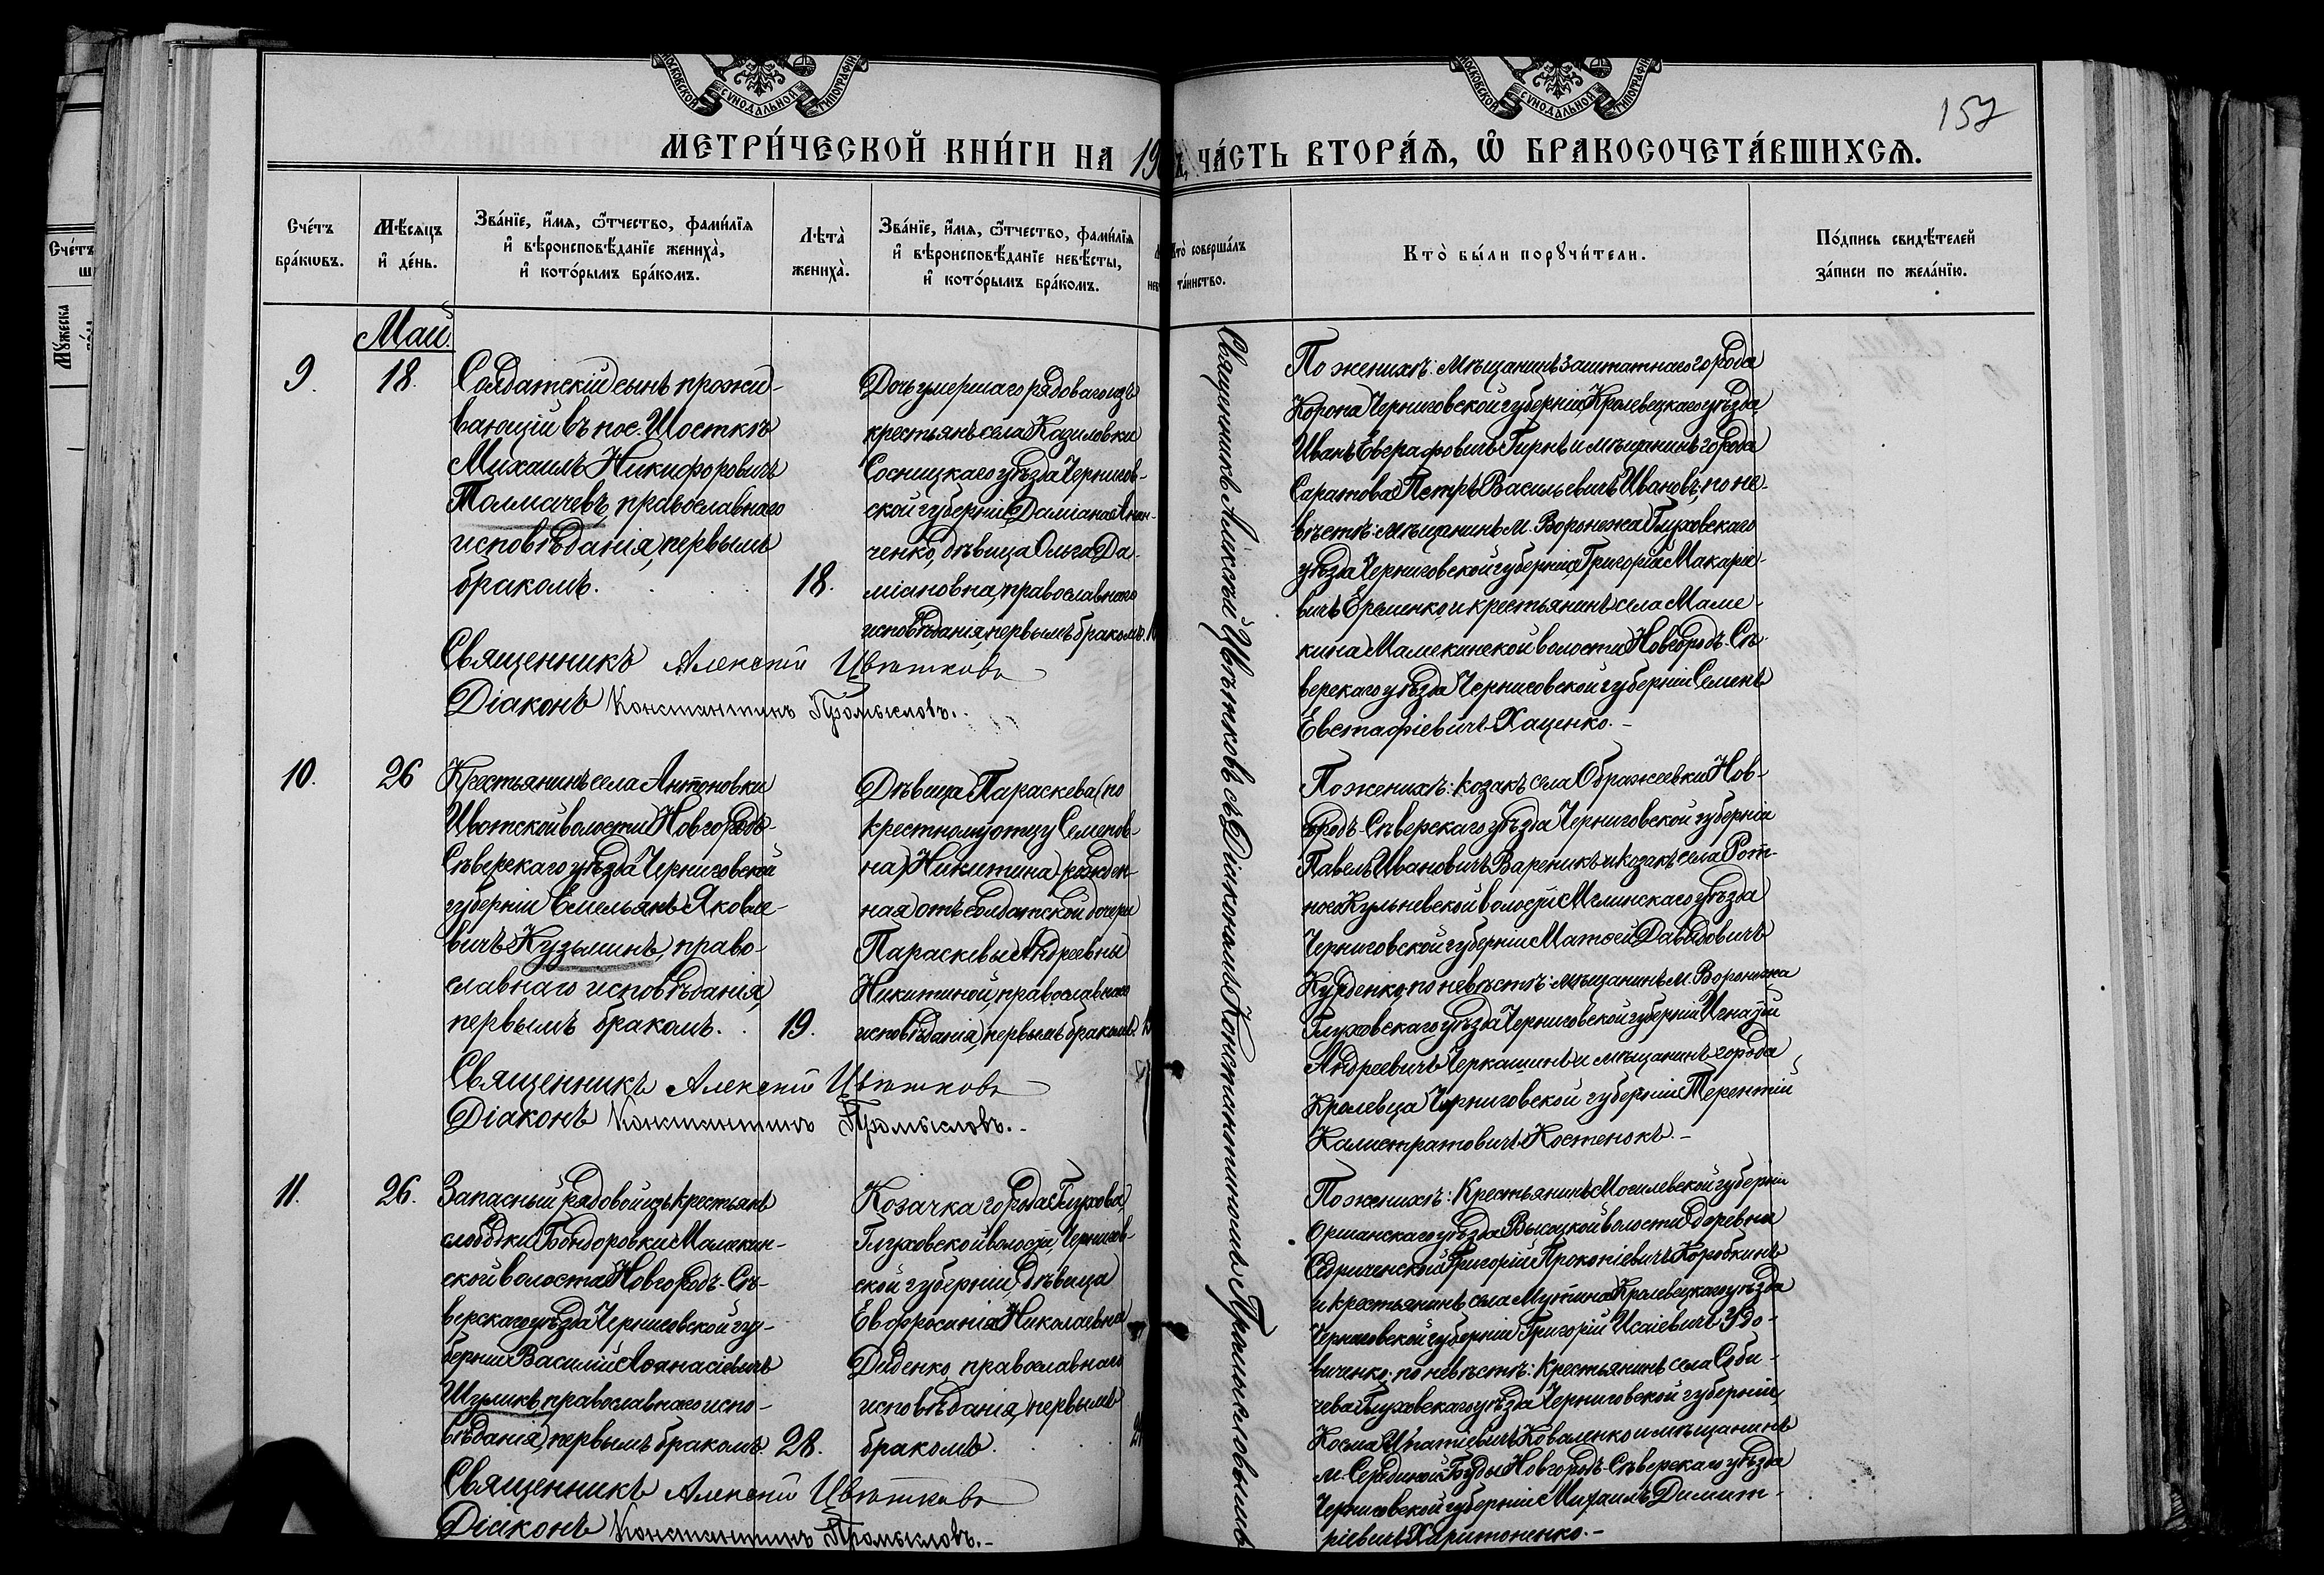 МОСКОВСКОЙ СѴНОДАЛЬНОЙ ТИПОГРАФІИ
МОСКОВСКОЙ СѴНОДАЛЬНОЙ ТИПОГРАФІИ
157
МЕТРИ́ЧЕСКОЙ КНИ́ГИ НА 19
ЧА́СТЬ ВТОРА́Ѧ, Ѡ҆ БРАКОСОЧЕТА́ВШИХСѦ.
Сче́тъ
бра́кѡвъ.
Мѣ́сѧцъ
и҆ де́нь.
Зва́нїе, и҆́мѧ, ѻ҆́тчество, фами́лїѧ
и҆ вѣроисповѣ́данїе жениха̀,
и҆ кото́рымъ бра́комъ.
Лѣта̀
жениха̀.
Зва́нїе, и҆́мѧ, ѻ҆́тчество, фами́лїѧ
и҆ вѣроисповѣ́данїе невѣ́сты,
и҆ кото́рымъ бра́комъ.
Кто̀ соверша́лъ
та́инство.
Кто̀ бы́ли порꙋчи́тели.
По́дпись свидѣ́телей
за́писи по жела́нїю.
Май.
9.
18.
Солдатскій сынъ прожи-
вающій въ пос. Шосткѣ
Михаилъ Никифоровичъ
Толмачевъ, православнаго
исповѣданія, первымъ
бракомъ.
18.
Дочь умершаго рядоваго изъ
крестьянъ села Казиловки
Сосницкаго уѣзда Чернигов-
ской губерніи Даміана Анан-
ченко, дѣвица Ольга Да-
міановна, православнаго
исповѣданія, первымъ бракомъ.
Священникъ Алексій Цвѣтковъ
Діаконъ Константинъ Промысловъ.
Священникъ Алексѣй Цвѣтковъ съ Діакономъ Константиномъ Промысловымъ
По женихѣ: мѣщанинъ заштатнаго города
Коропа Черниговской губерніи, Кролевецкаго уѣзда
Иванъ Евграфовичъ Гирнъ и мѣщанинъ города
Саратова Петръ Васильевичъ Ивановъ, по не-
вѣстѣ: мѣщанинъ м. Воронежа Глуховскаго
уѣзда Черниговской губерніи, Григорій Макаріе-
вичъ Еременко и крестьянинъ села Маме-
кина Мамекинской волости Новгородъ-Сѣ-
верскаго уѣзда Черниговской губерніи Семенъ
Евстафіевичъ Хаценко.-
10.
26
Крестьянинъ села Антоновки
Ивотской волости Новгородъ-
Сѣверскаго уѣзда Черниговской
губерніи Емельянъ Яковле-
вичъ Кузьминъ, право-
славнаго исповѣданія,
первымъ бракомъ.
19.
Дѣвица Параскева (по
крестному отцу Семенов-
на) Никитина, рожден-
ная отъ солдатской дочери
Параскевы Андреевны
Никитиной, православнаго
исповѣданія, первымъ бракомъ.
Священникъ Алексій Цвѣтковъ
Діаконъ Константинъ Промысловъ.-
По женихѣ: козакъ села Ображеевки Нов-
городъ-Сѣверскаго уѣзда Черниговской губерніи
Павелъ Ивановичъ Вареникъ и козакъ села Рот-
ного Кульневской волости Мглинскаго уѣзда
Черниговской губерніи Матѳей Давидовичъ
Курденко, по невѣстѣ: мѣщанинъ м. Воронежа
Глуховскаго уѣзда Черниговской губерніи Игнатій
Андреевичъ Черкашинъ и мѣщанинъ города
Кролевца Черниговской губерніи Терентій
Калистратовичъ Костенокъ.-
11.
26.
Запасный рядовой изъ крестьянъ
слободки Бондоровки Мамекин-
ской волости Новгородъ-Сѣ-
верскаго уѣзда Черниговской гу-
берніи Василій Аѳанасіевичъ
Шуликъ, православнаго испо-
вѣданія, первымъ бракомъ
28.
Козачка города Глухова
Глуховской волости, Чернигов-
ской губерніи, дѣвица
Евфросинія Николаевна
Диденко, православнаго
исповѣданія, первымъ
бракомъ.
Священникъ Алексій Цвѣтковъ
Діаконъ Константинъ Промысловъ.-
По женихѣ: Крестьянинъ Могилевской губерніи
Оршанскаго уѣзда Высоцкой волости деревни
Григорій Прокопіевичъ Коробкинъ
и крестьянинъ села Мутина Кролевецкаго уѣзда
Черниговской губерніи Григорій Исаіевичъ Удо-
виченко, по невѣстѣ: Крестьянинъ села Соби-
чева Глуховскаго уѣзда Черниговской губерніи,
Косма Ипатіевичъ Коваленко и мѣщанинъ
м. Середины Буды Новгородъ-Сѣверскаго уѣзда
Черниговской губерніи Михаилъ Димит-
ріевичъ Харитоненко.-
Счетъ
Мꙋжеска